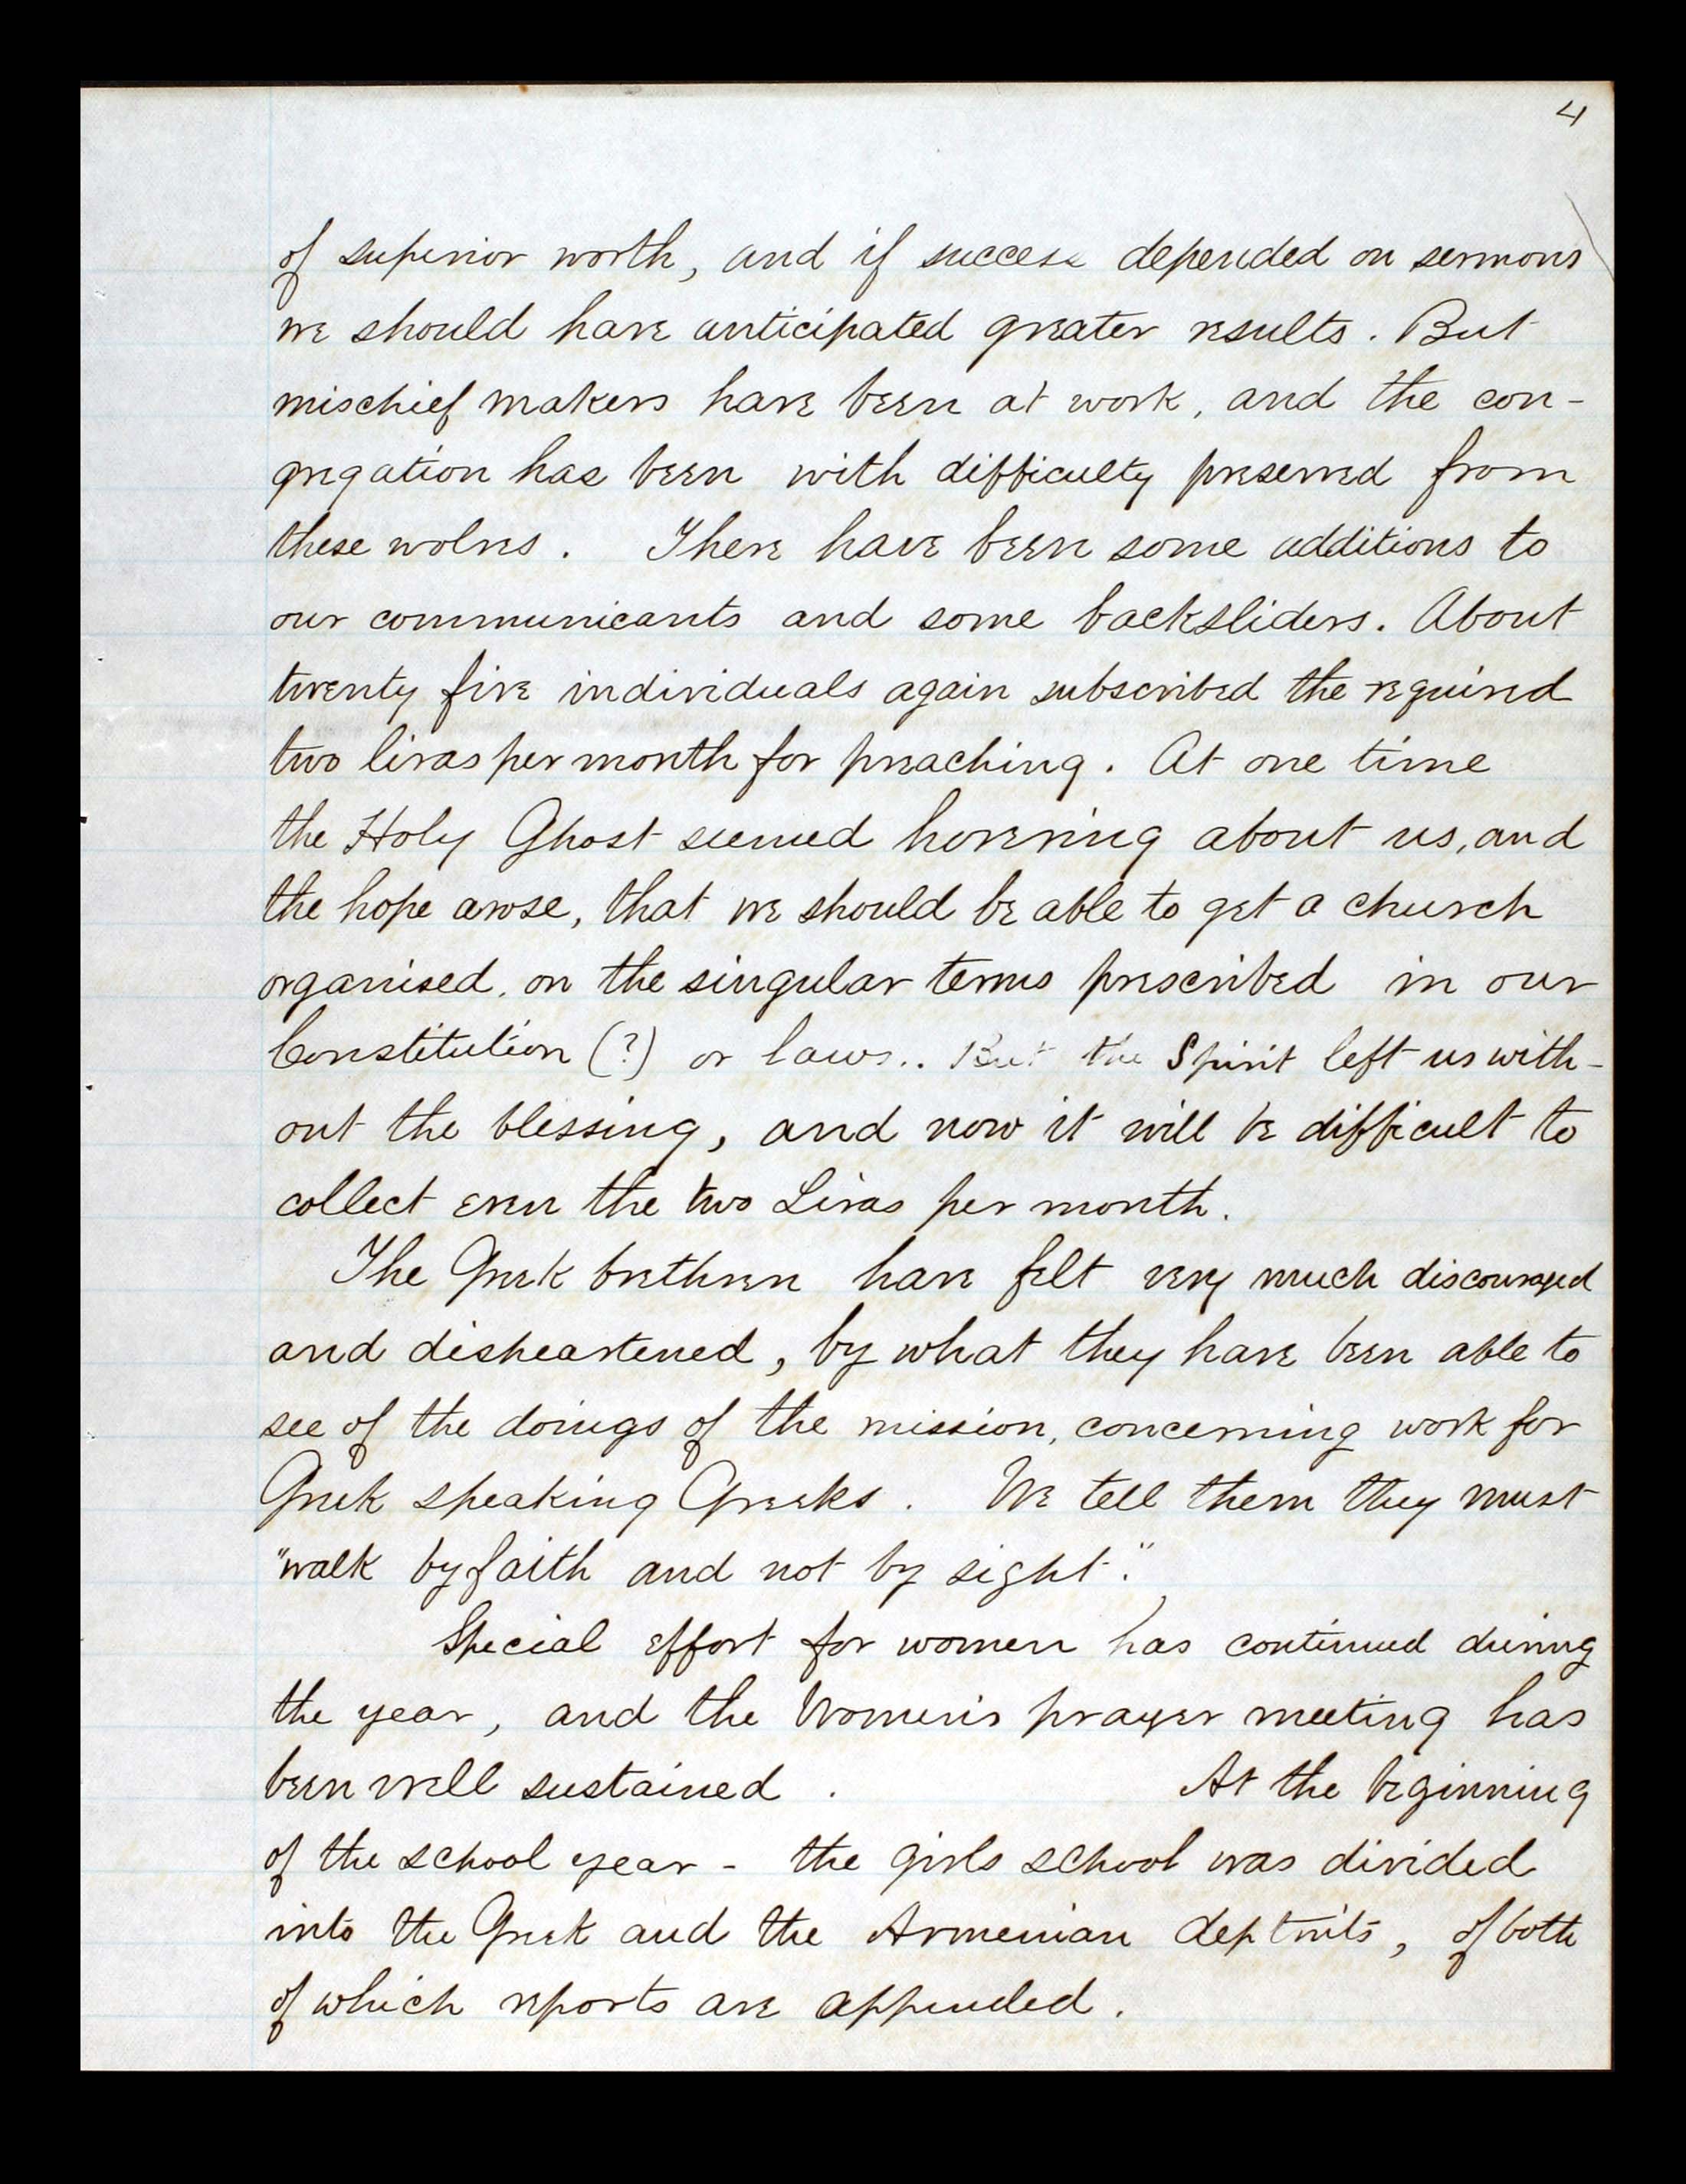 4
of superior worth, and if success depended on sermons
we should have anticipated greater results. But
mischief makers have been at work, and the con-
gregation has been with difficulty preserved from
these wolves. There have been some additions to
our communicants and some backsliders. About
twenty five individuals again subscribed the required
two liras per month for preaching. At one time
the Holy Ghost seemed hovering about us, and
the hope arose, that we should be able to get a church
organised, on the singular terms prescribed in our
Constitution (?) or laws.. But the Spirit left us with-
out the blessing, and now it will be difficult to
collect even the two Liras per month.
The Greek brethren have felt very much discouraged
and disheartened, by what they have been able to
see of the doings of the mission, concerning work for
Greek speaking Greeks. We tell them they must
"walk by faith and not by sight".
Special effort for women has continued during
the year, and the Women's prayer meeting has
been well sustained. At the beginning
of the school year - the girls school was divided
into the Greek and the Armenian deptmts, of both
of which reports are appended.